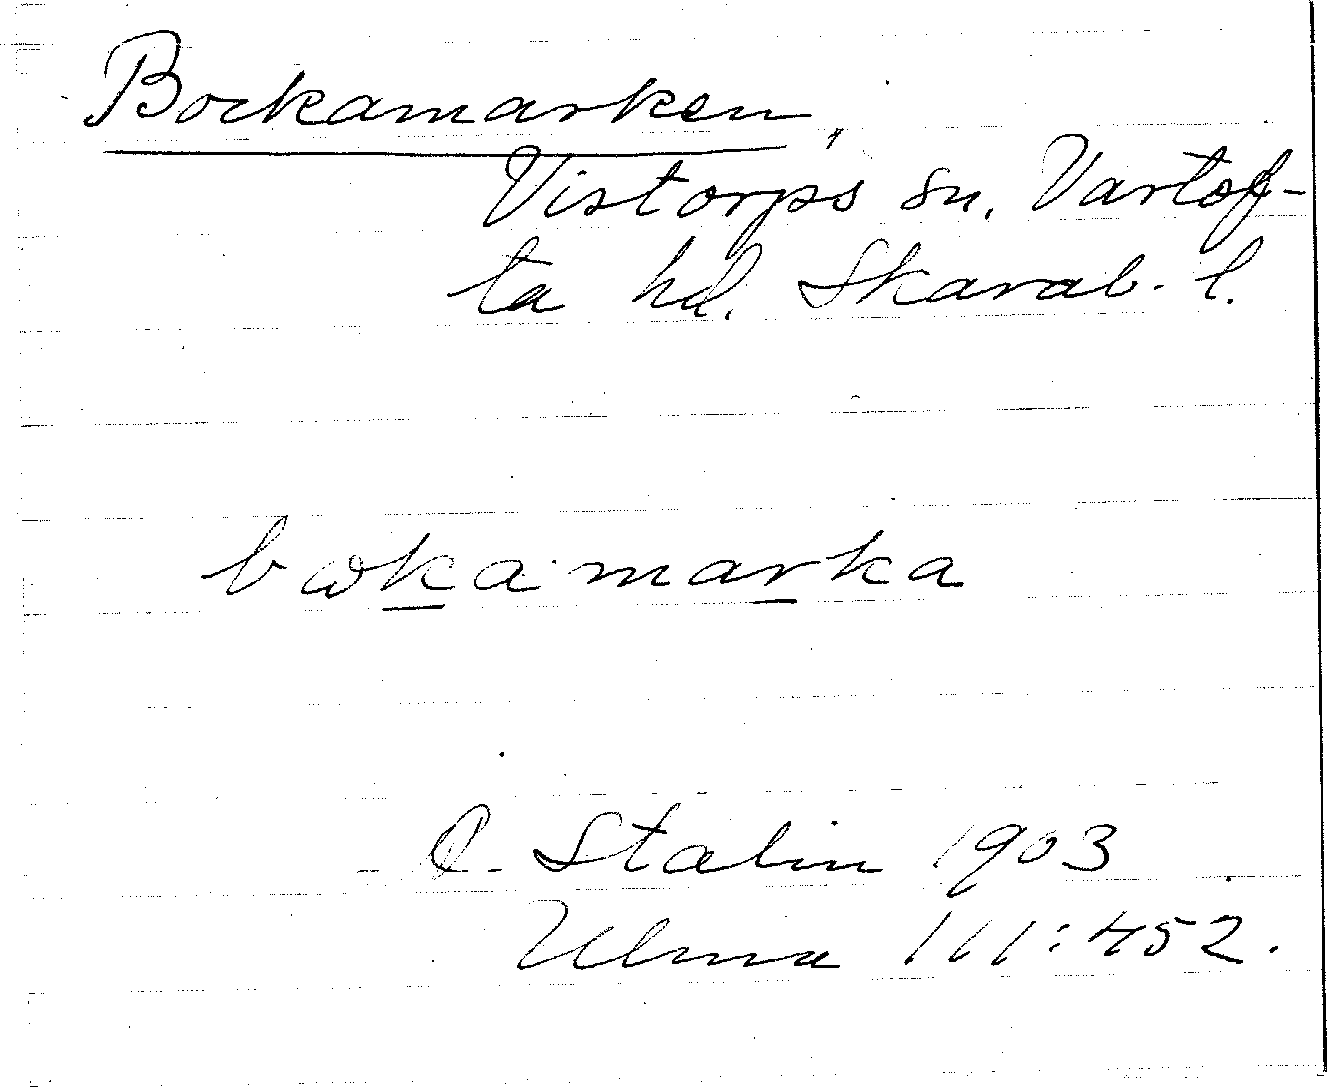 Bockamarken,
Vistorps sn. Vartof-
ta hd. Skarab. l.
bωkamarka
O. Stalin 1903
Ulma 111:452.